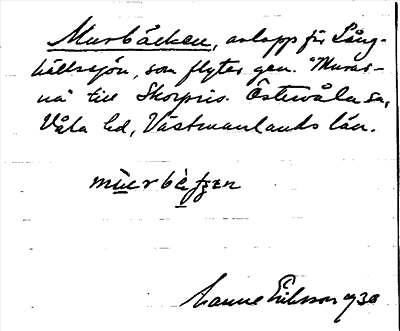 Murbäcken, avlopp för Lång-
hällssjön, som flyter gen. "Muras-
nä" till Skorpris. Östervåla sn,
Våla hd, Västmanlands län.
mùerbètʒen
Eriksson 1930